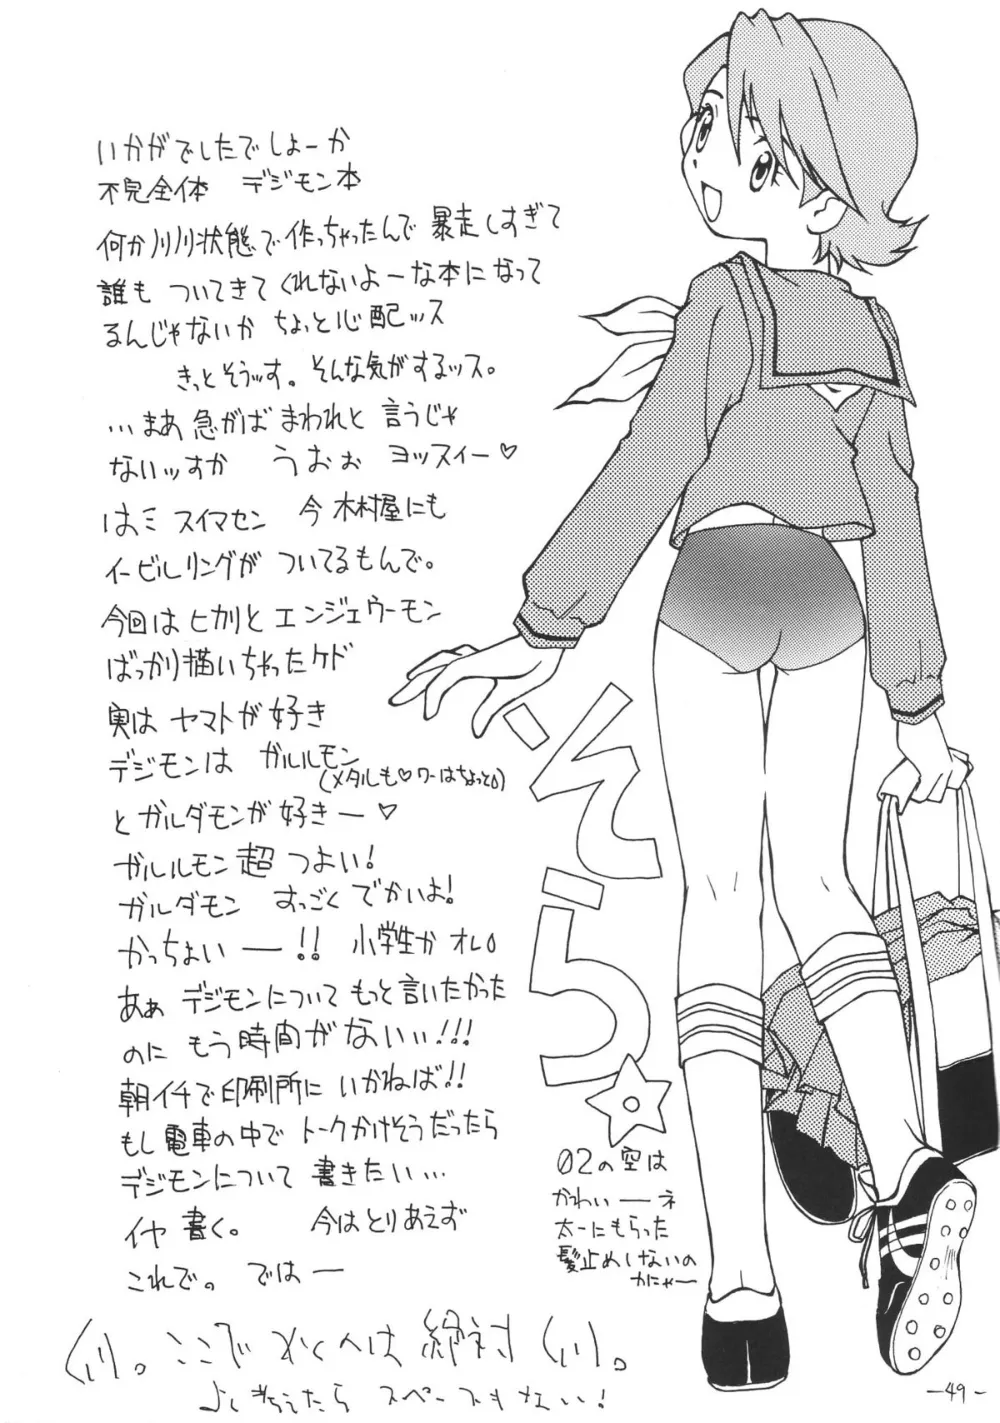 いかがでしたでしょーか
不完全体 デジモン本
何かノリノリ状態で作っちゃったんで 暴走しすぎて
誰も ついてきてくれないよーな本になって
るんじゃないか ちょっと心配ッス
きっとそうッす。そんな気がするッス。
…まあ 急がば まわれと 言うじゃ
ないッすか うおぉ ヨッスィー♡
はミ スイマセン 今 木村屋にも
イービルリングが ついてるもんで。
今回は ヒカリと エンジェウーモン
ばっかり描いちゃったケド
実は ヤマトが好き
デジモンは ガルルモン
(メタルも♡ワーはちょっと)
とガルダモンが好きー♡
ガルルモン 超 つよい!
ガルダモン すっごくでかいよ!
かっちょいー!! 小学生か オレ
あぁ デジモンについて もっと言いたかった
のに もう時間がないぃ!!!
朝イチで印刷所に いかねば!!
もし電車の中で トークかけそうだったら
デジモンについて 書きたい…
イヤ 書く。 今はとりあえず
これで。 ではー
ここで は 絶対
よく考えたら スペースもない!
そら
☆
02の空は
かわいーネ
太一にもらった
髪止めしないの
かにゃー
-49-